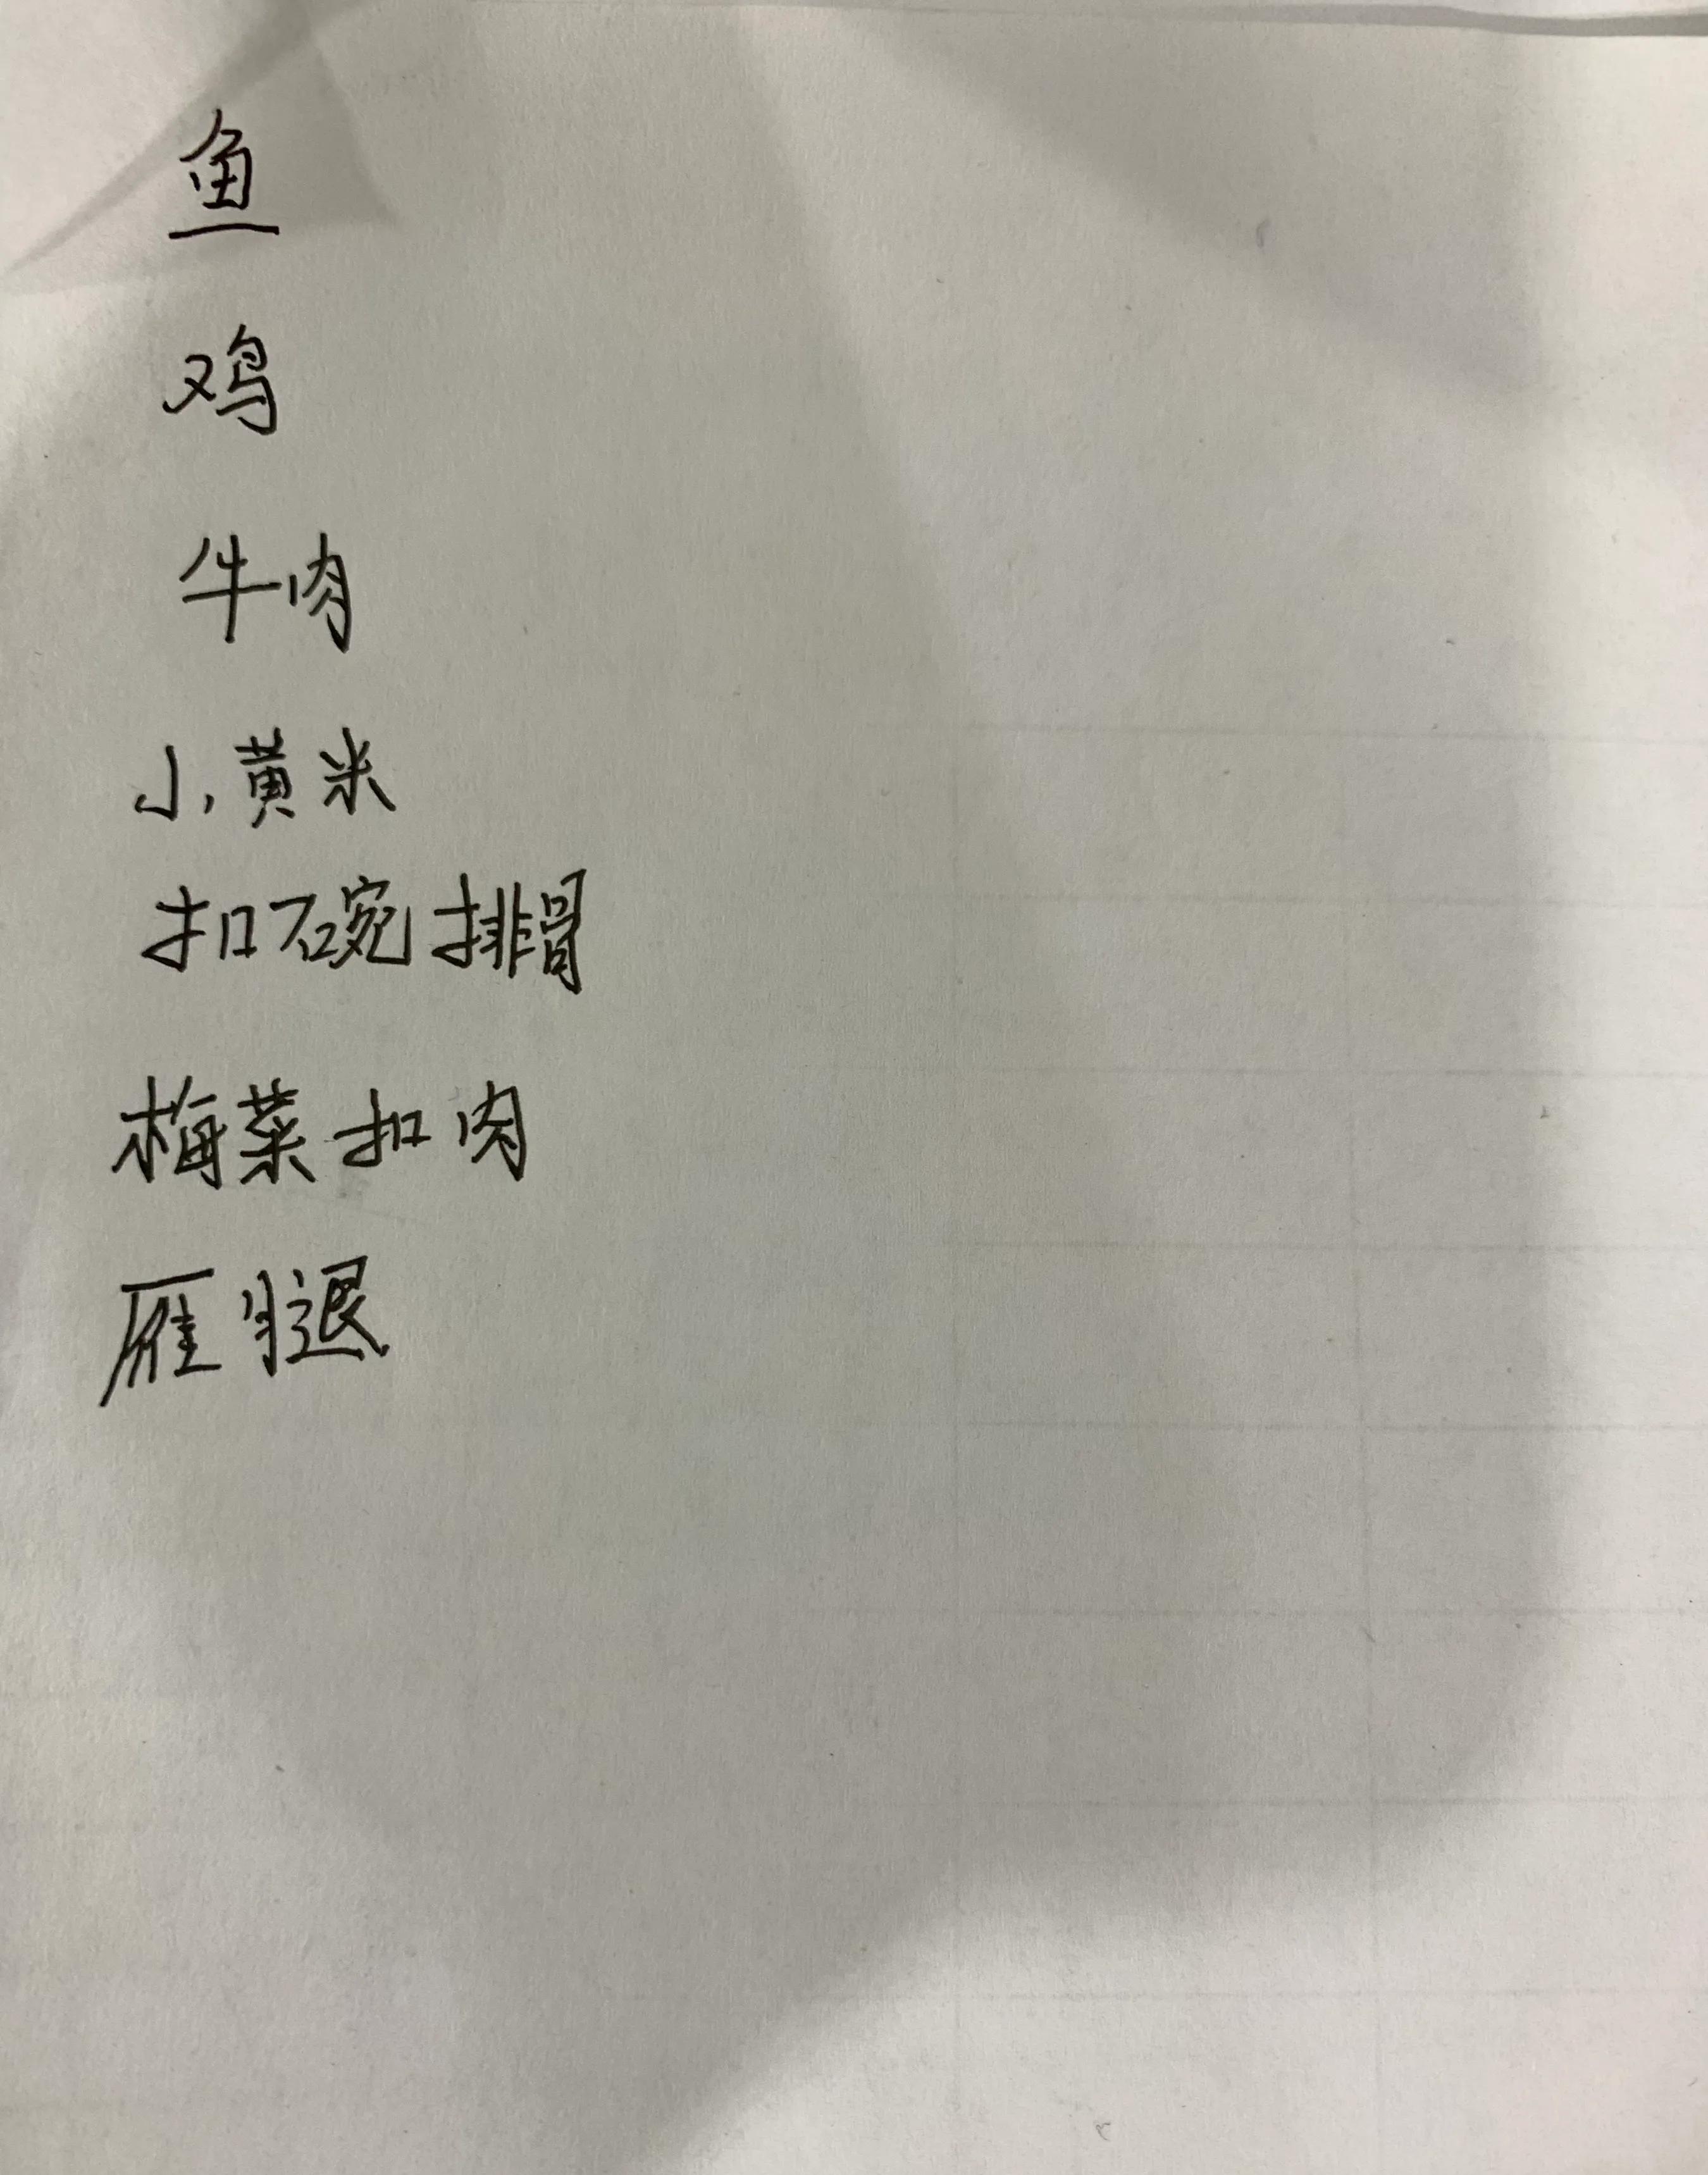 鱼
鸡
牛肉
小黄米
扣碗排骨
梅菜扣肉
雁腿